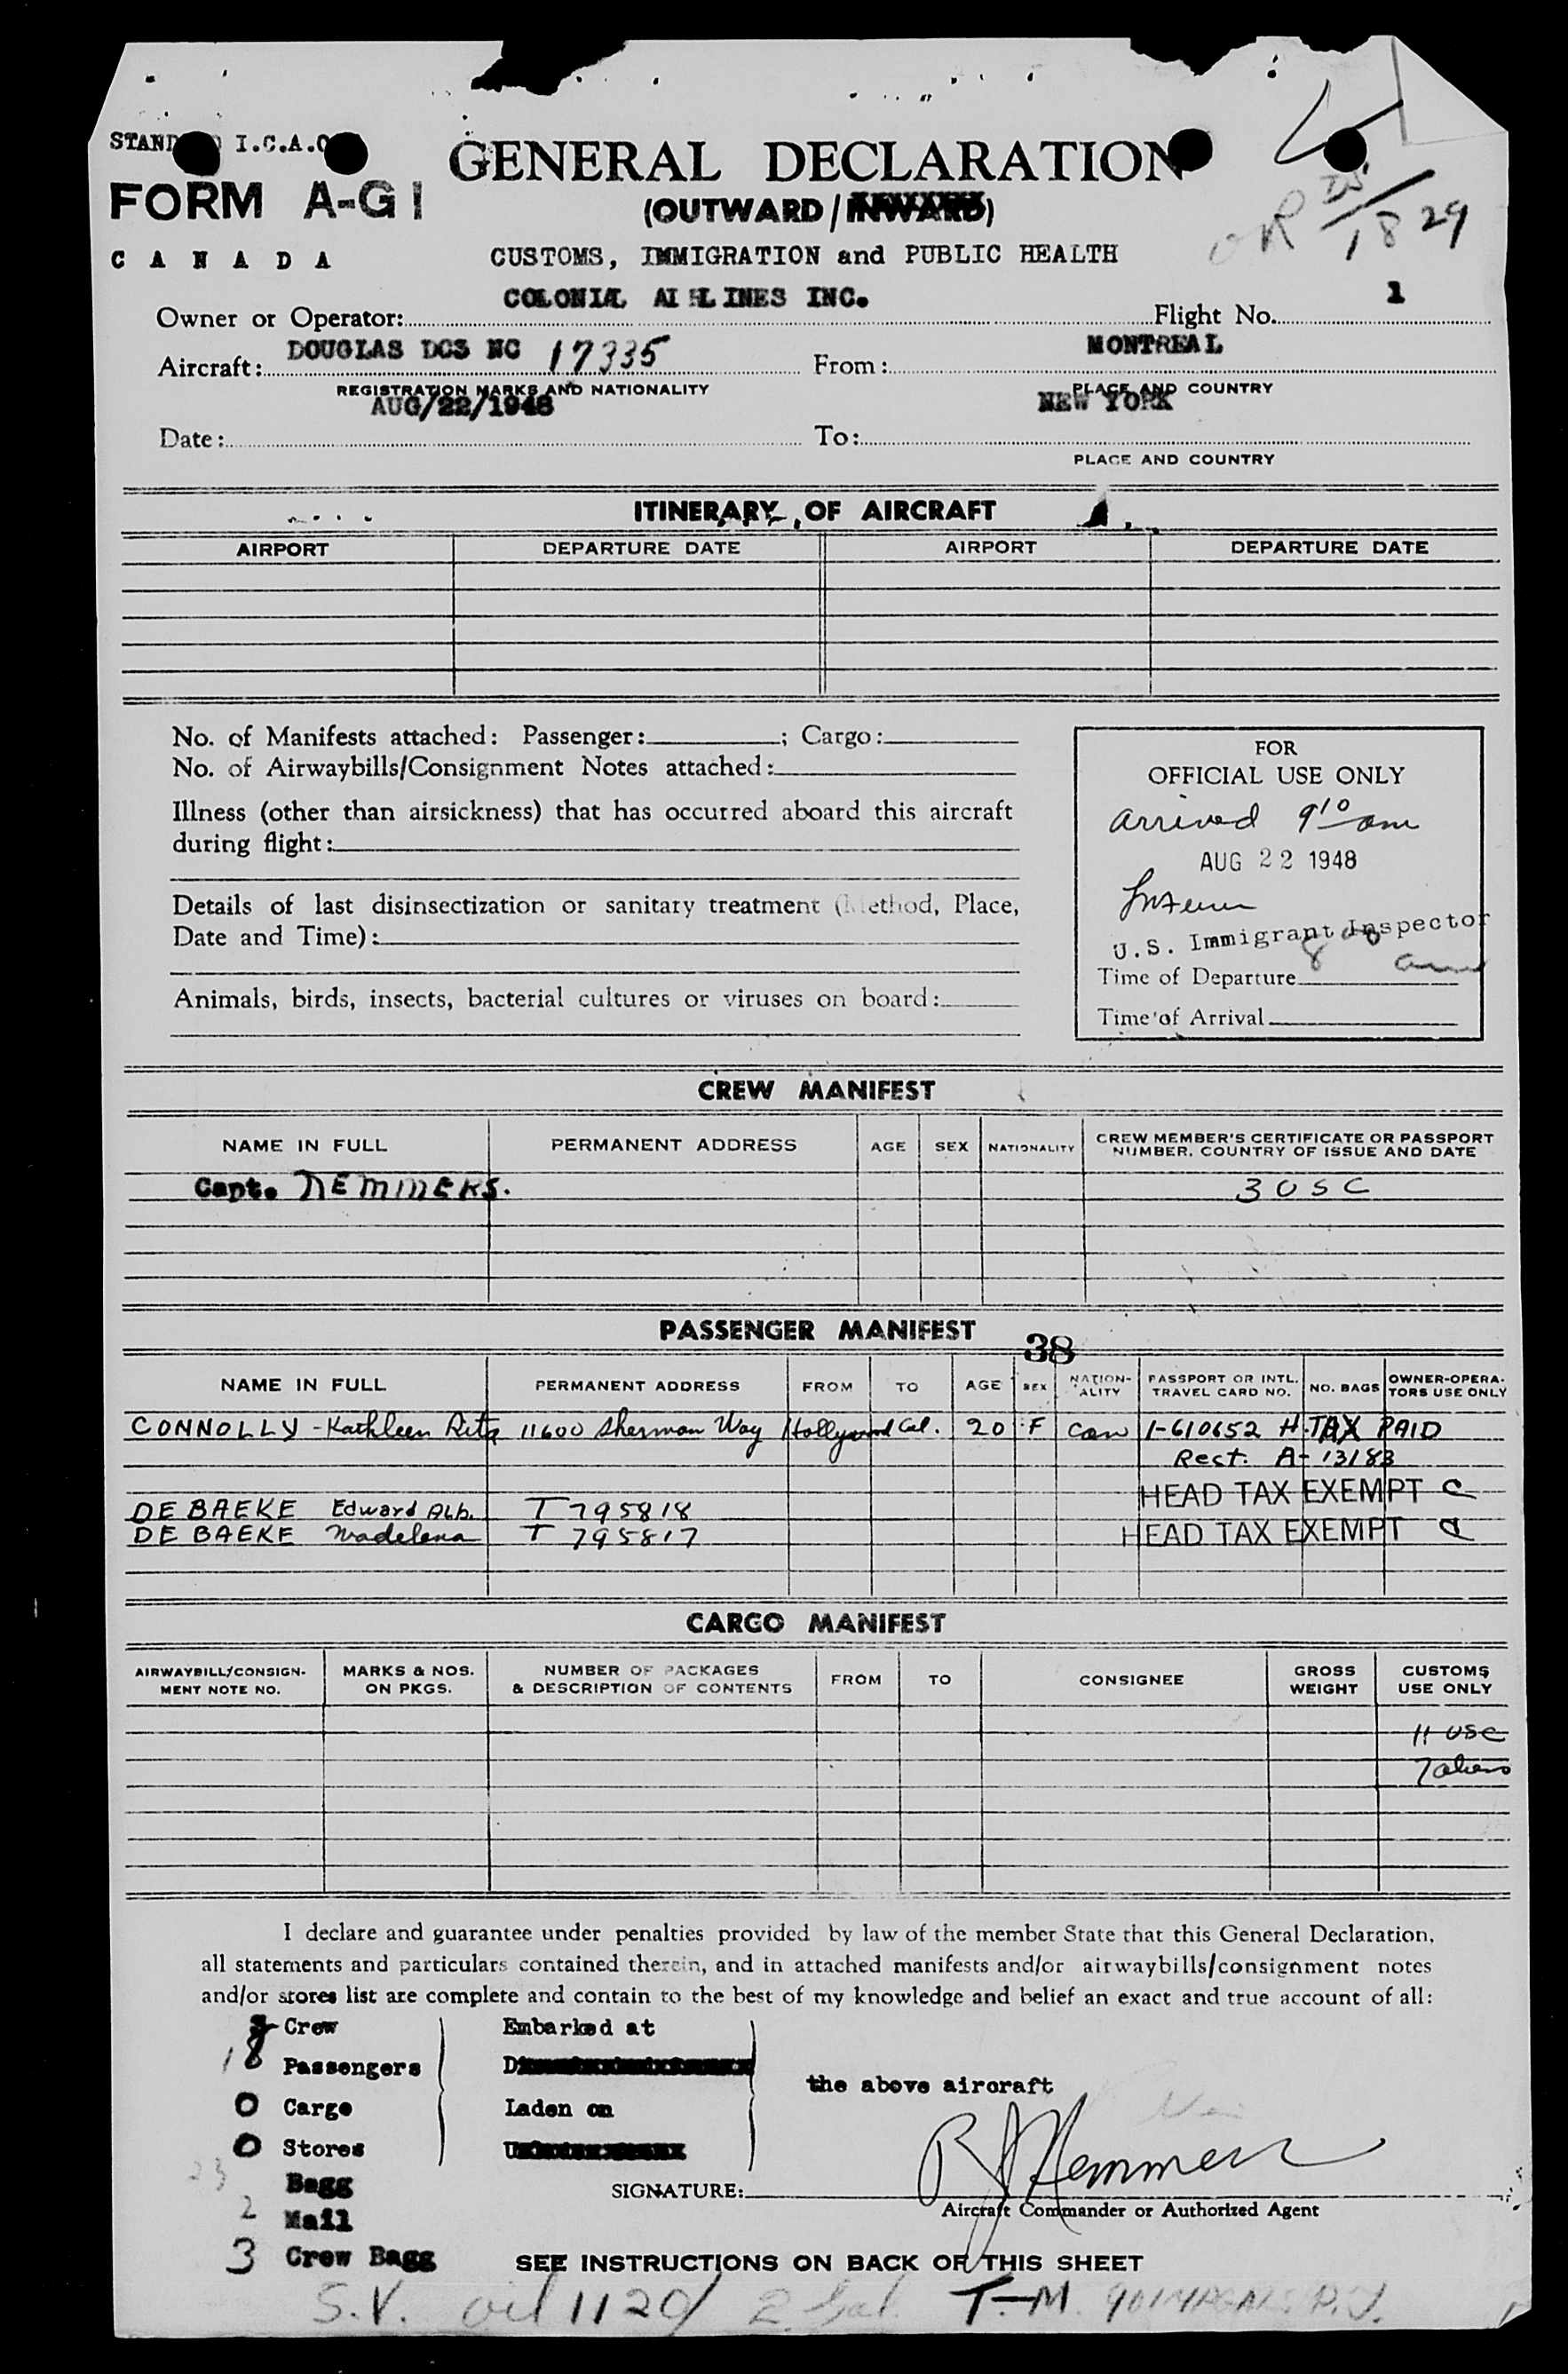 I.C.A.O.
GENERAL DECLARATION
FORM A-G1
(OUTWARD/INWARD)
OR 25/18 29
CANADA
CUSTOMS, IMMIGRATION and PUBLIC HEALTH
Owner or Operator: COLONIAL AIRLINES INC. Flight No. 1
Aircraft: DOUGLAS DC3 NC 17335 From: MONTREAL
REGISTRATION MARKS AND NATIONALITY PLACE AND COUNTRY
Date: AUG/22/1948 To: NEW YORK
PLACE AND COUNTRY
ITINERARY OF AIRCRAFT
AIRPORT DEPARTURE DATE AIRPORT DEPARTURE DATE
No. of Manifests attached: Passenger: ; Cargo:
No. of Airwaybills/Consignment Notes attached:
Illness (other than airsickness) that has occurred aboard this aircraft
during flight:
Details of last disinsectization or sanitary treatment (Method, Place,
Date and Time):
Animals, birds, insects, bacterial cultures or viruses on board:
FOR
OFFICIAL USE ONLY
arrived 9 10 am
AUG 22 1948
U.S. Immigrant Inspector
Time of Departure 8 00 am
Time of Arrival
CREW MANIFEST
NAME IN FULL PERMANENT ADDRESS AGE SEX NATIONALITY CREW MEMBER'S CERTIFICATE OR PASSPORT
NUMBER, COUNTRY OF ISSUE AND DATE
Capt. NEMMERS. 3 USC
PASSENGER MANIFEST
38
NAME IN FULL PERMANENT ADDRESS FROM TO AGE SEX NATION-ALITY PASSPORT OR INTL. TRAVEL CARD NO. NO. BAGS OWNER-OPERA-TORS USE ONLY
CONNOLLY - Kathleen Rita 11600 Sherman Way Hollywood Cal. 20 F Can 1-610652 H.TAX PAID
Rect. A-13183
HEAD TAX EXEMPT
DE BAEKE Edward Alb. T 795818
DE BAEKE Madelena T 795817 HEAD TAX EXEMPT
CARGO MANIFEST
AIRWAYBILL/CONSIGN-MENT NOTE NO. MARKS & NOS. ON PKGS. NUMBER OF PACKAGES & DESCRIPTION OF CONTENTS FROM TO CONSIGNEE GROSS WEIGHT CUSTOMS USE ONLY
11 USC
7 aliens
I declare and guarantee under penalties provided by law of the member State that this General Declaration,
all statements and particulars contained therein, and in attached manifests and/or airwaybills/consignment notes
and/or stores list are complete and contain to the best of my knowledge and belief an exact and true account of all:
Crew Embarked at
18 Passengers
the above aircraft
0 Cargo Laden on
0 Stores
23 Bagg
SIGNATURE: R J Nemmers
2 Mail
Aircraft Commander or Authorized Agent
3 Crew Bagg
SEE INSTRUCTIONS ON BACK OF THIS SHEET
S.V. oil 1120/ 2 Gal. T-M